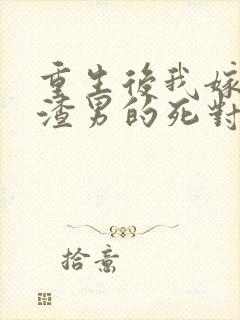 重生後我嫁
渣男的死對
拾意